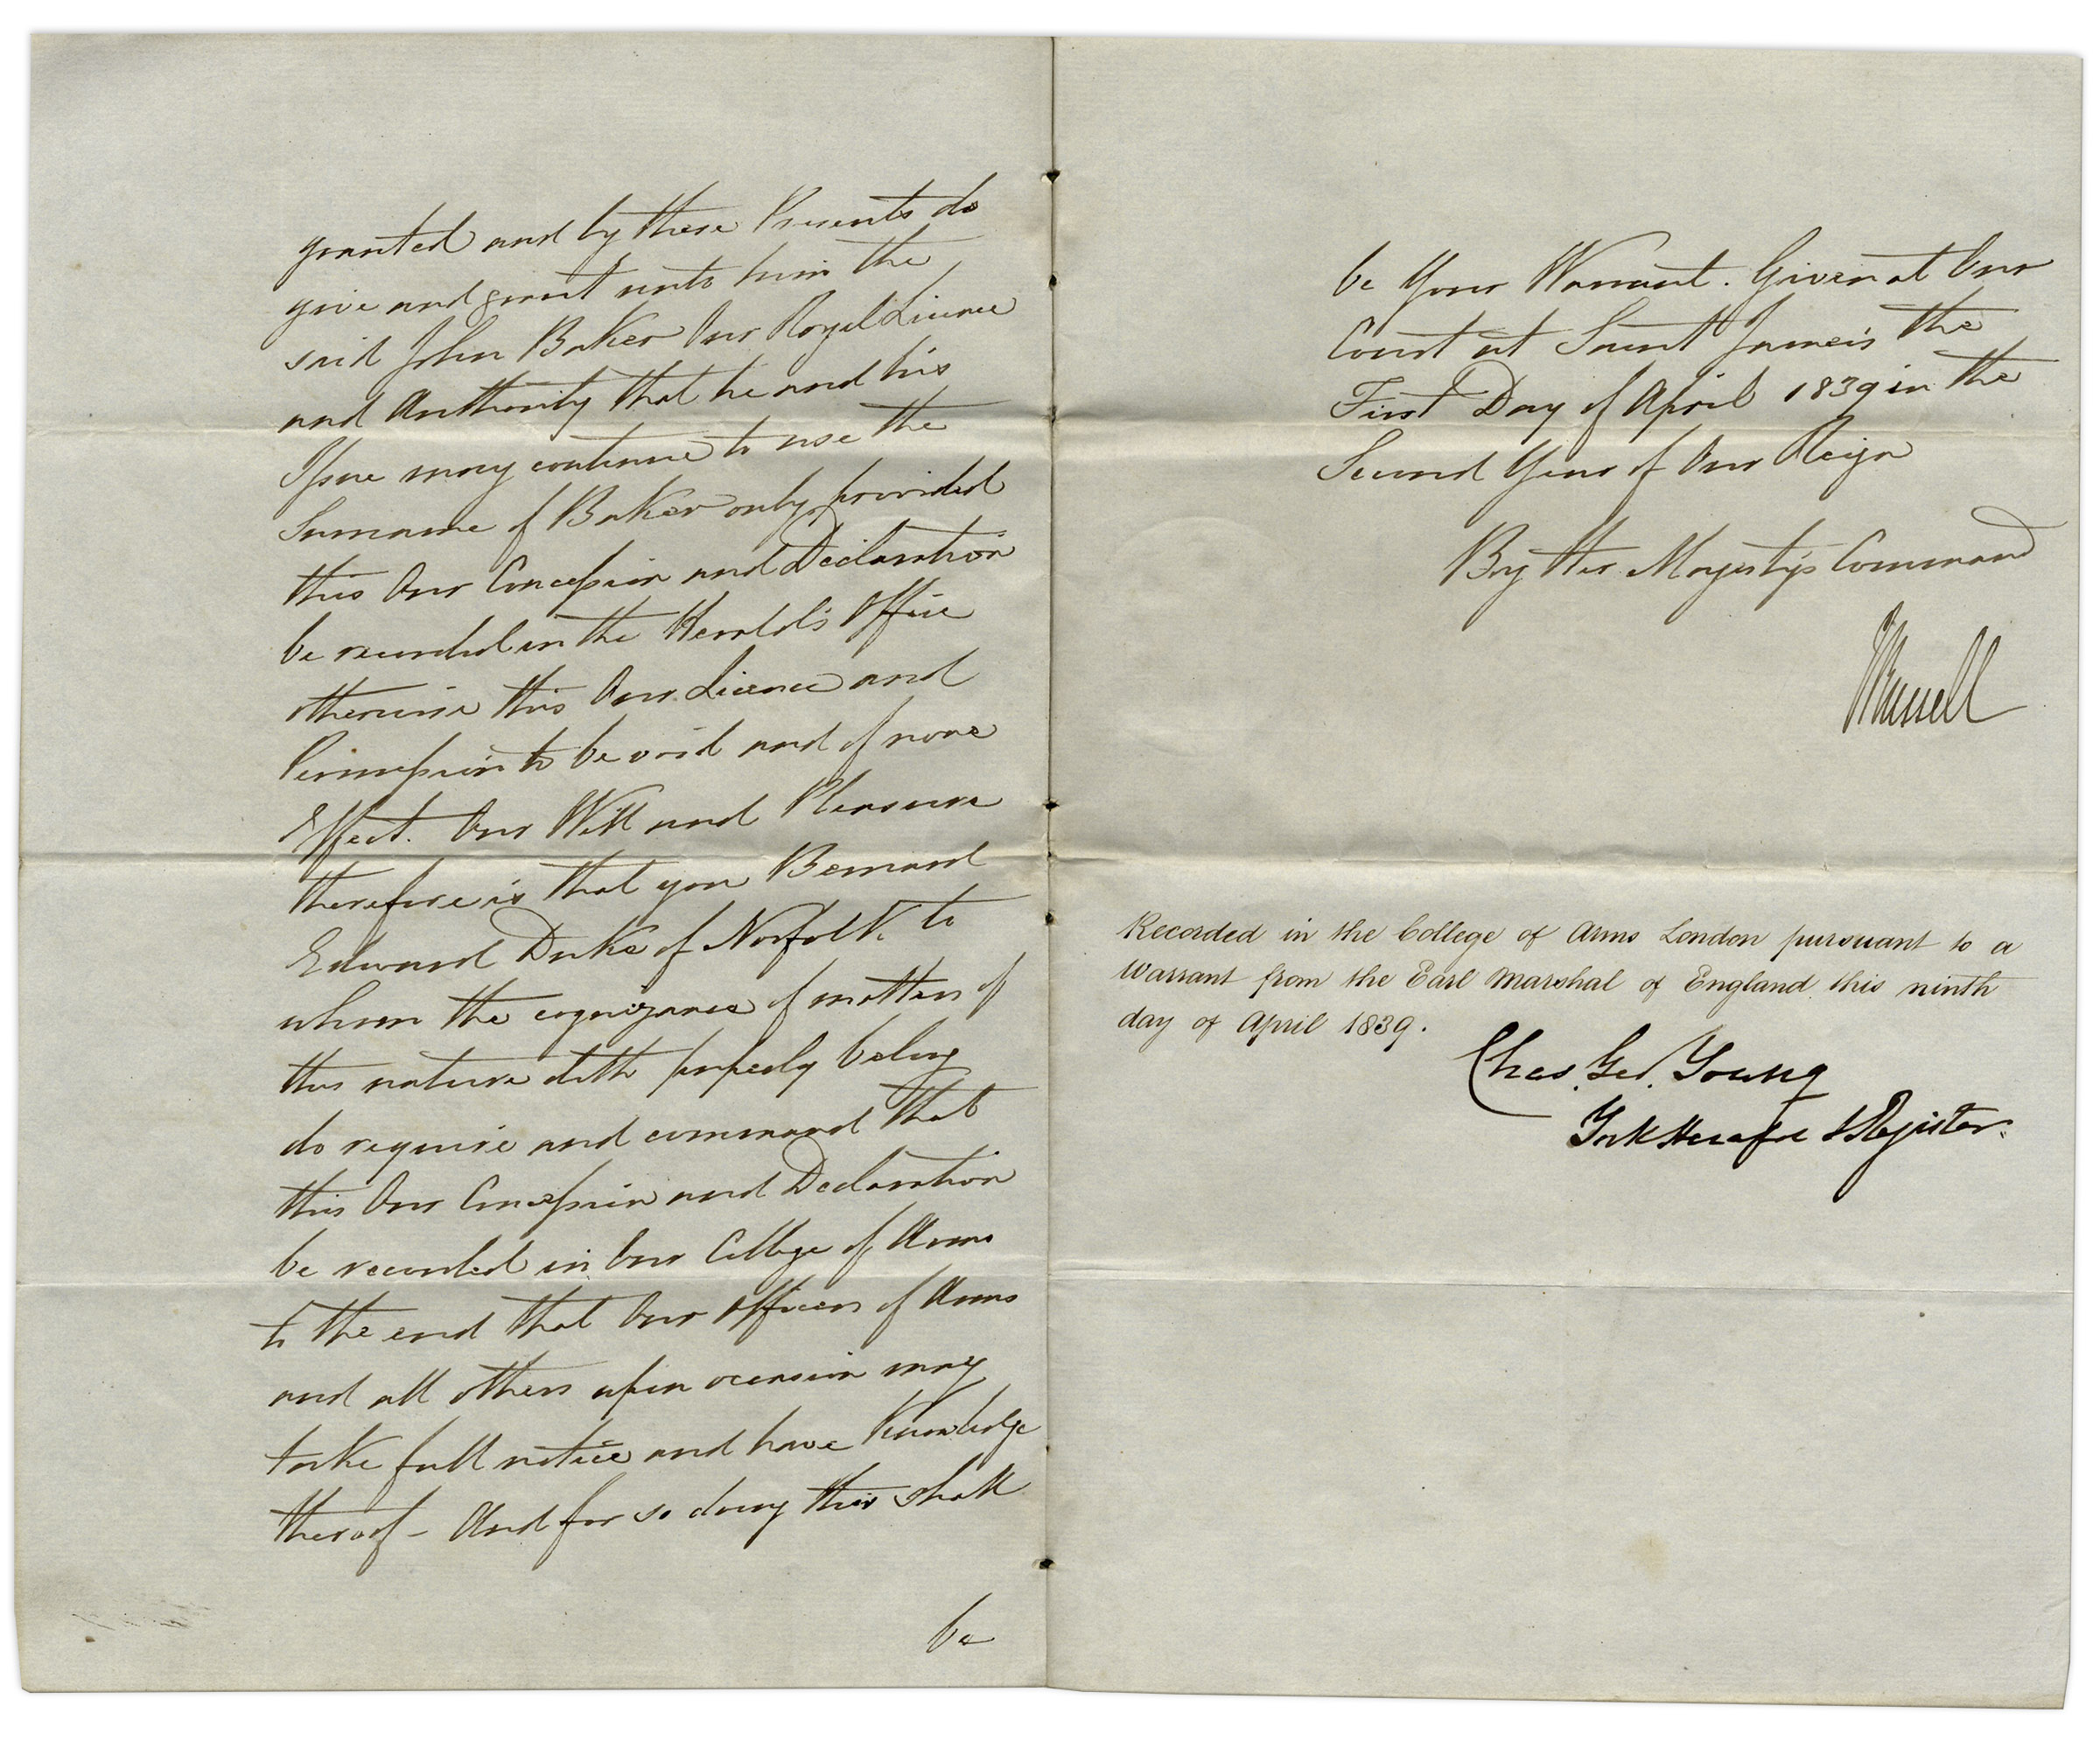 granted and by these Presents do
give and grant unto him the
said John Baker Our Royal Licence
and Authority that he and his
Issue may continue to use the
Surname of Baker only, provided
this Our Concession and Declaration
be recorded in the Herald's Office
otherwise this Our Licence and
Permission to be void and of none
Effect. Our Will and Pleasure
therefore is that you Bernard
Edward Duke of Norfolk to
whom the cognizance of matters of
this nature doth properly belong
do require and command that
this Our Concession and Declaration
be recorded in Our College of Arms
to the end that Our Officers of Arms
and all others upon occasion may
take full notice and have Knowledge
thereof - And for so doing this shall
be
be Your Warrant. Given at Our
Court at Saint James's the
First Day of April 1839 in the
Second Year of Our Reign
By Her Majesty's Command
J Russell
Recorded in the College of Arms London pursuant to a
Warrant from the Earl Marshal of England this ninth
day of April 1839.
Chas. Geo. Young
York Herald & Register.